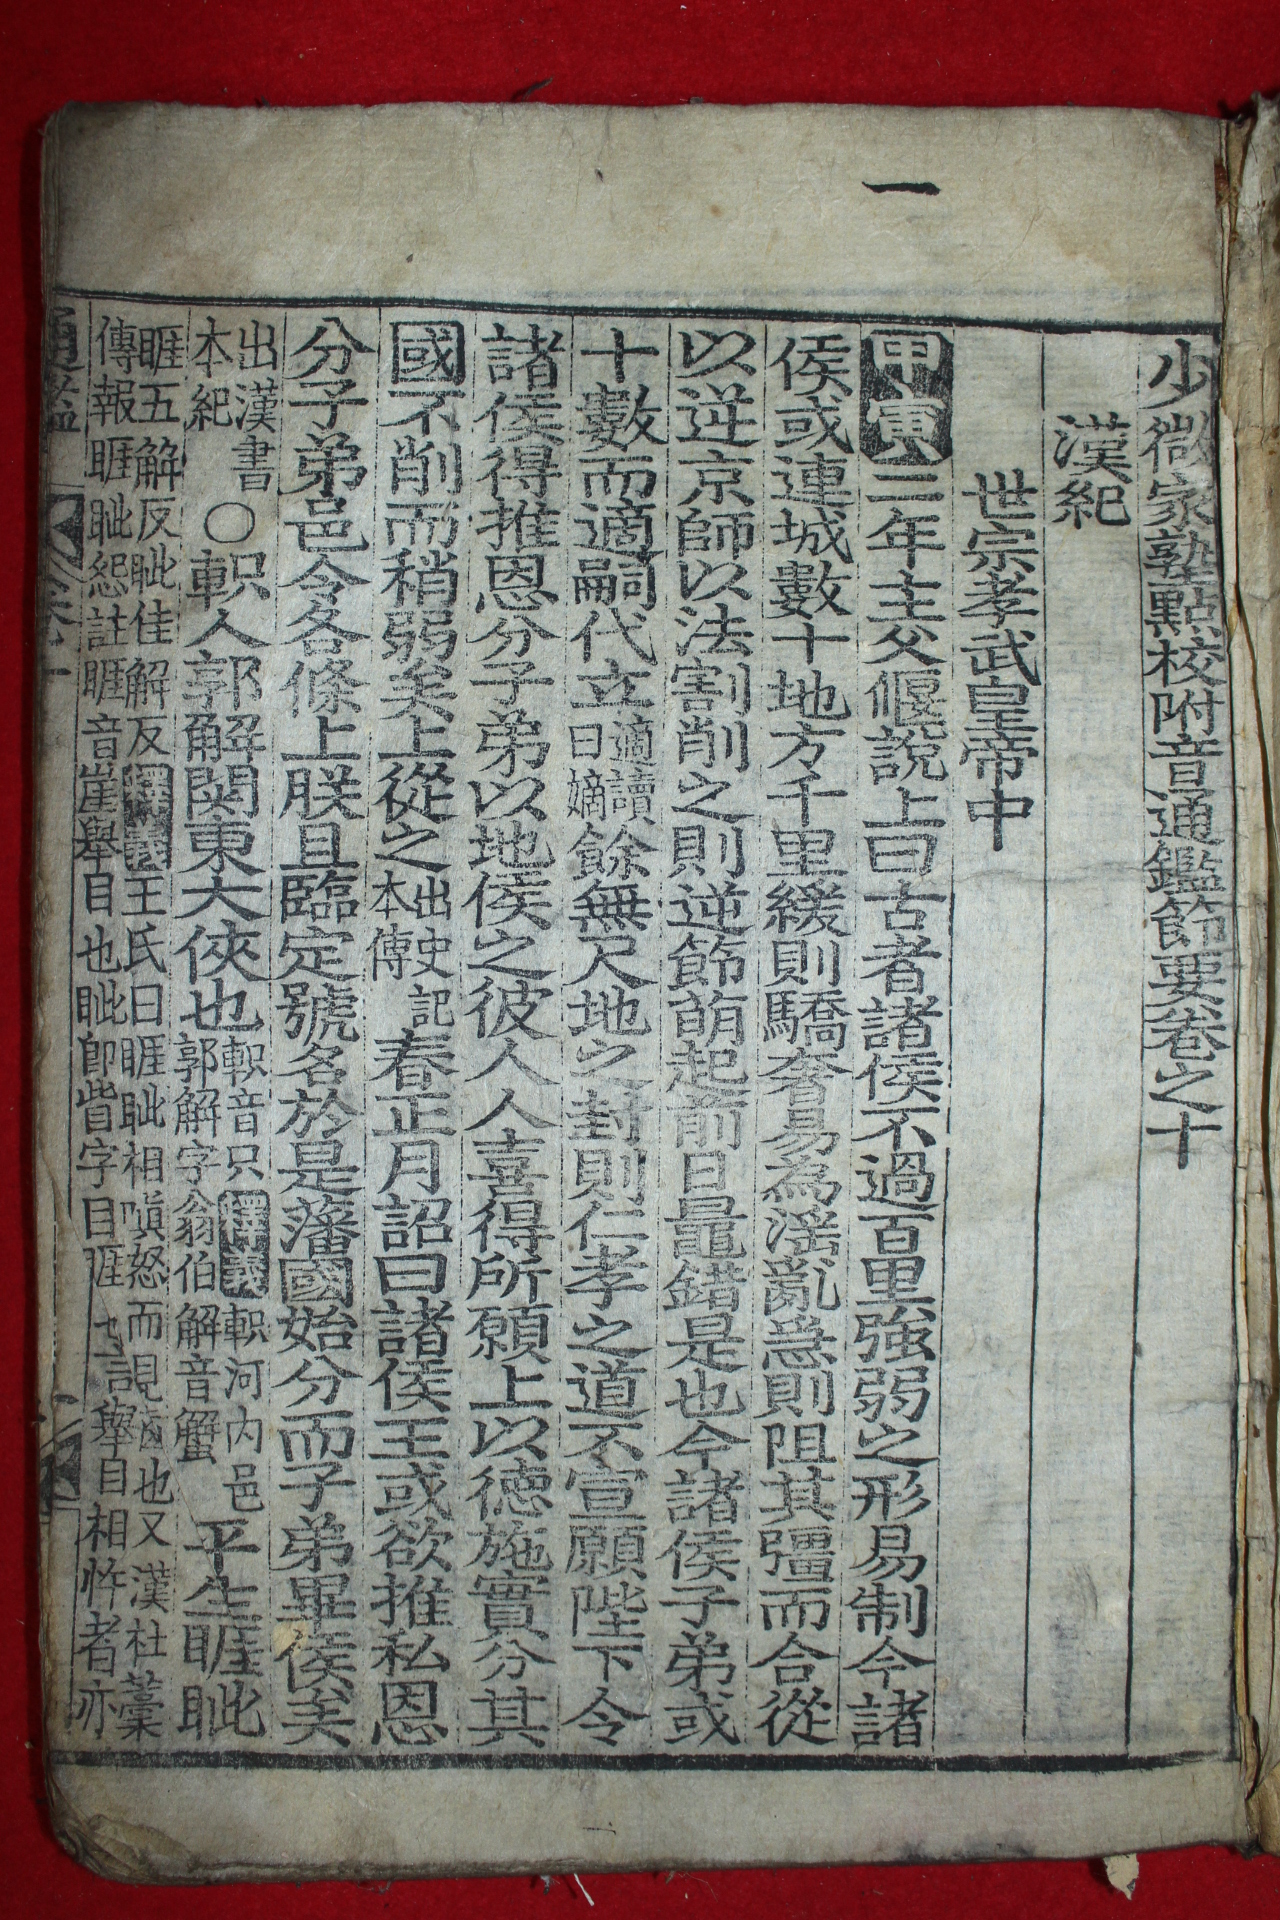 一
少微家塾點校附音通鑑節要卷之十
漢紀
世宗孝武皇帝中
甲寅二年主父偃說上曰古者諸侯不過百里強弱之形易制今諸
侯或連城數十地方千里緩則驕奢易為滛亂急則阻其彊而合從
以逆京師以法割削之則逆節萌起前日鼂錯是也今諸侯子弟或
十數而適嗣代立適讀曰嫡餘無尺地之封則仁孝之道不宣願陛下令
諸侯得推恩分子弟以地侯之彼人人喜得所願上以德施實分其
國不削而稍弱矣上從之出史記本傳春正月詔曰諸侯王或欲推私恩
分子弟邑令各條上朕且臨定號名於是藩國始分而子弟畢侯矣
出漢書本紀○軹人郭解関東大俠也軹音只釋義軹河內邑郭解字翁伯解音蟹平生睚眦
睚五解反眦仕解反釋義王氏曰睚眦相嗔怒而見齒也又漢杜藁
傳報睚眦怨註睚音崖舉目也眦即眥字目匡也言舉目相忤者亦
通鑑 卷十